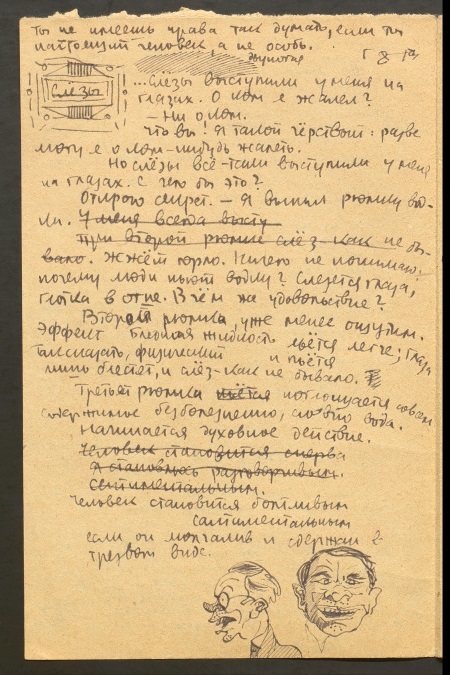 Ты не имеешь права так думать, если ты
настоящий человек, а не особь.
двуногая
Слёзы
...Слёзы выступили у меня на
глазах. О ком я жалел?
– Ни о ком.
Что вы! Я такой чёрствый: разве
могу я о ком-нибудь жалеть.
Но слёзы всё-таки выступили у меня
на глазах. С чего бы это?
Открою секрет. – Я выпил рюмку вод-
ки. У меня всегда высту
При второй рюмке слёз как не бы-
вало. Жжёт горло. Ничего не понимаю:
почему люди пьют водку? Слезятся глаза,
глотка в огне. В чём же удовольствие?
Вторая рюмка, уже менее ощутим.
Эффект бледная жидкость льётся легче; глаза
так сказать, физический и пьётся
лишь блестят, и слёз – как не бывало.
Третья рюмка льётся поглощается совсем
содержимое безболезненно, словно вода.
Начинается духовное действие.
Человек становится сперва
Я становлюсь разговорчивым.
сентиментальным.
Человек становится болтливым
сантиментальным
если он молчалив и сдержан в
трезвом виде.